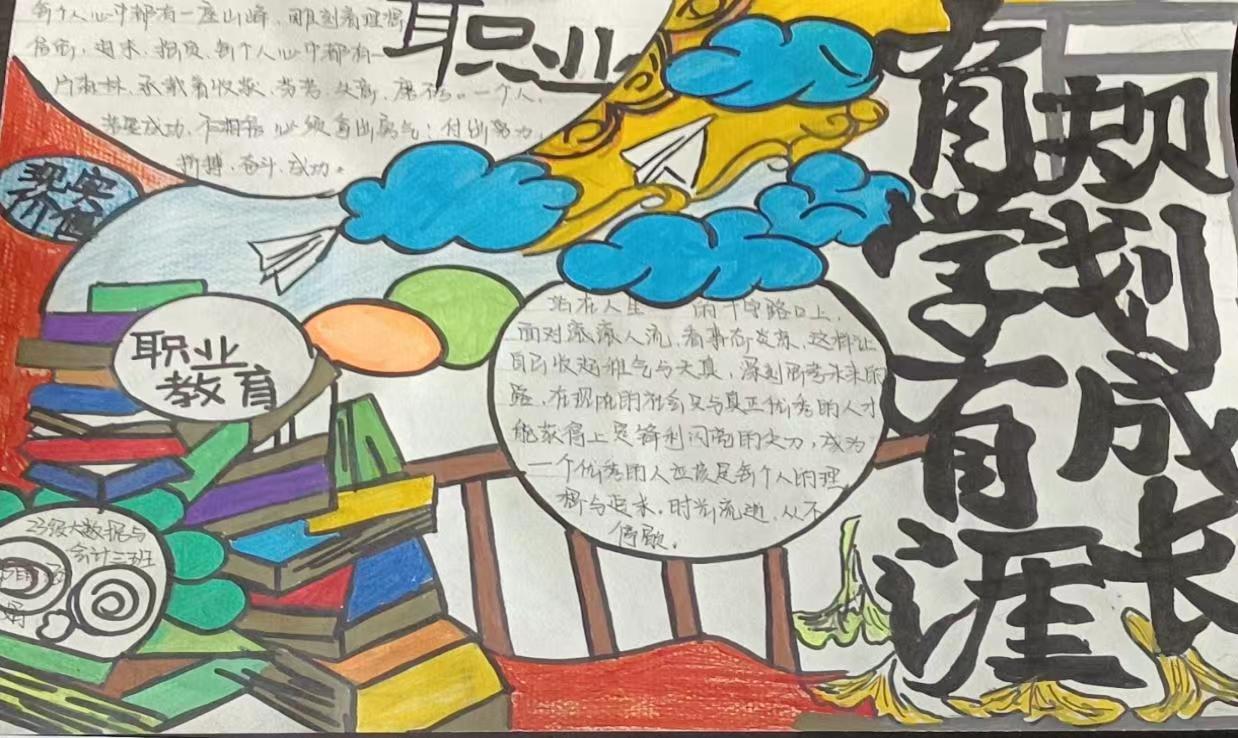 每个人心中都有一座山峰，雕刻着理想
信念、追求、抱负，每个人心中都有一
片森林，承载着收获、芬芳、失意、磨砺。一个人，
若要成功，不
必须拿出勇气：付出努力、
拼搏、奋斗、成功。
职业
现实
价值
职业
教育
站在人生 的十字路口上，
面对滚滚人流，看
自己收起稚气与天真，深刻思考未来的
路，在现代的社会只与真正优秀的人才
能获得上是锋利闪亮的尖刀，成为
一个优秀的人应该是每个人的理
想与追求，时光流逝，从不
停歇。
23级大数据与
会计三班
规划成长
有学有涯